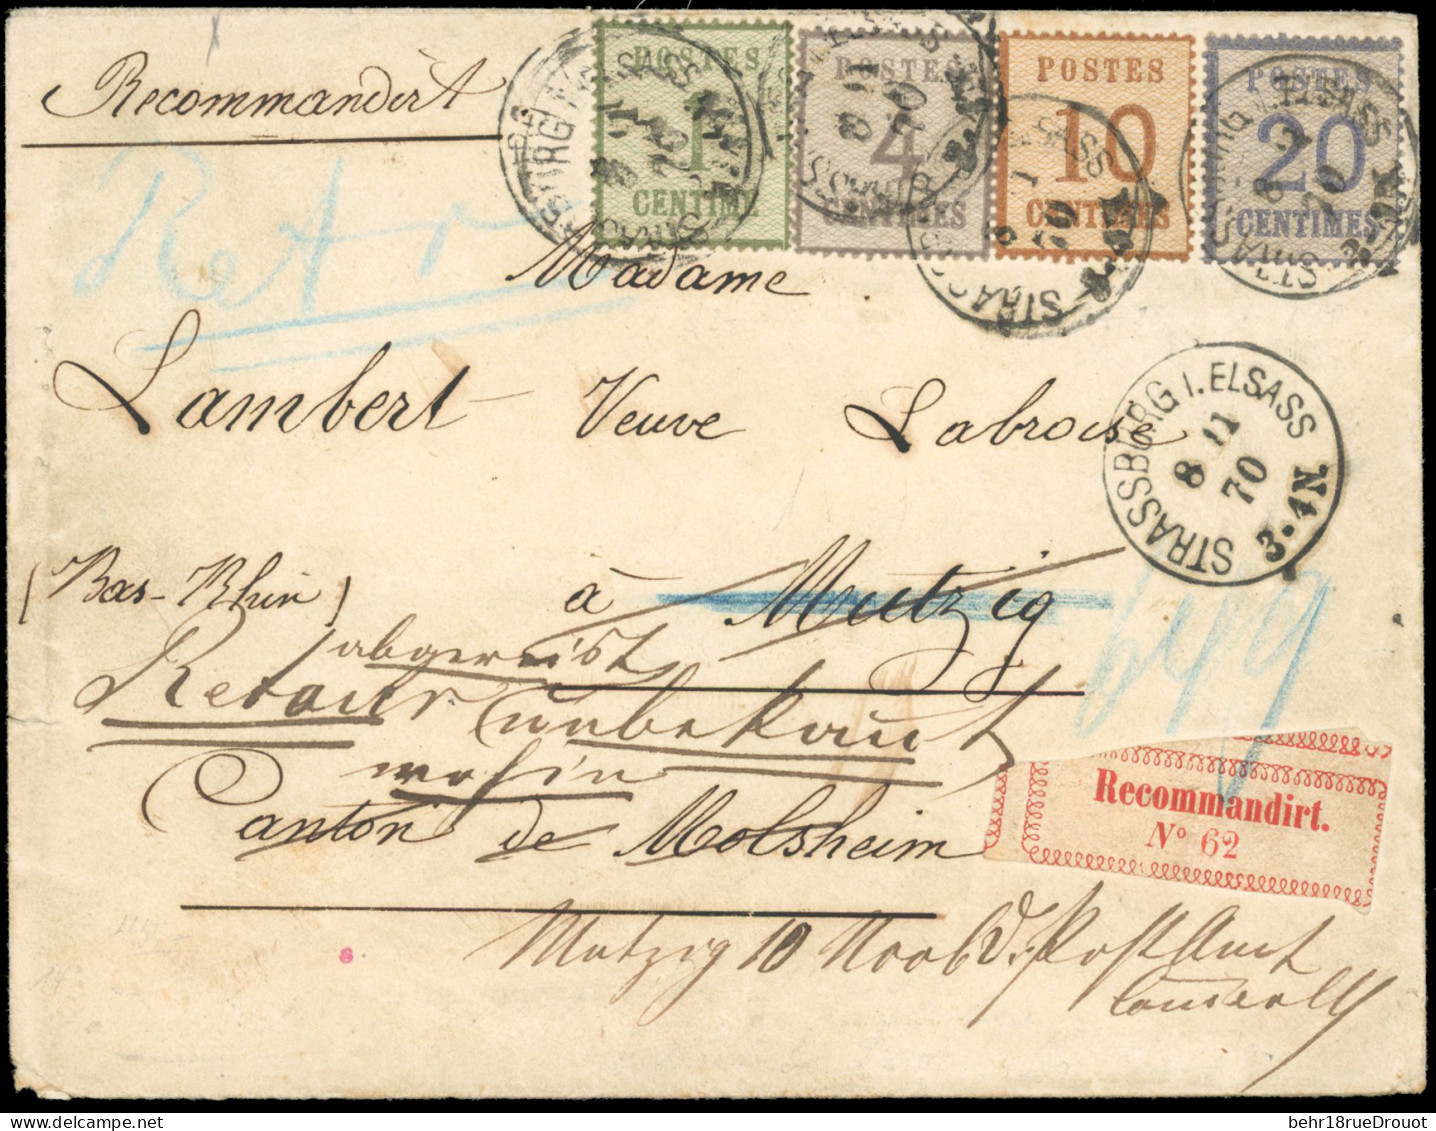 Recommandirt
POSTES
1
CENTIME
POSTES
4
CENTIMES
POSTES
10
CENTIMES
POSTES
20
CENTIMES
Ret r
Madame
Lambert Veuve Labroise
STRASSBURG I. ELSASS
8 11
70
3-4N.
(Bas-Rhin)
à Mutzig
abgereist
Retour unbekant
wohin
Canton de Molsheim
Recommandirt.
N° 62
Mutzig 10 Novb d. Post Amt
behr18rueDrouot